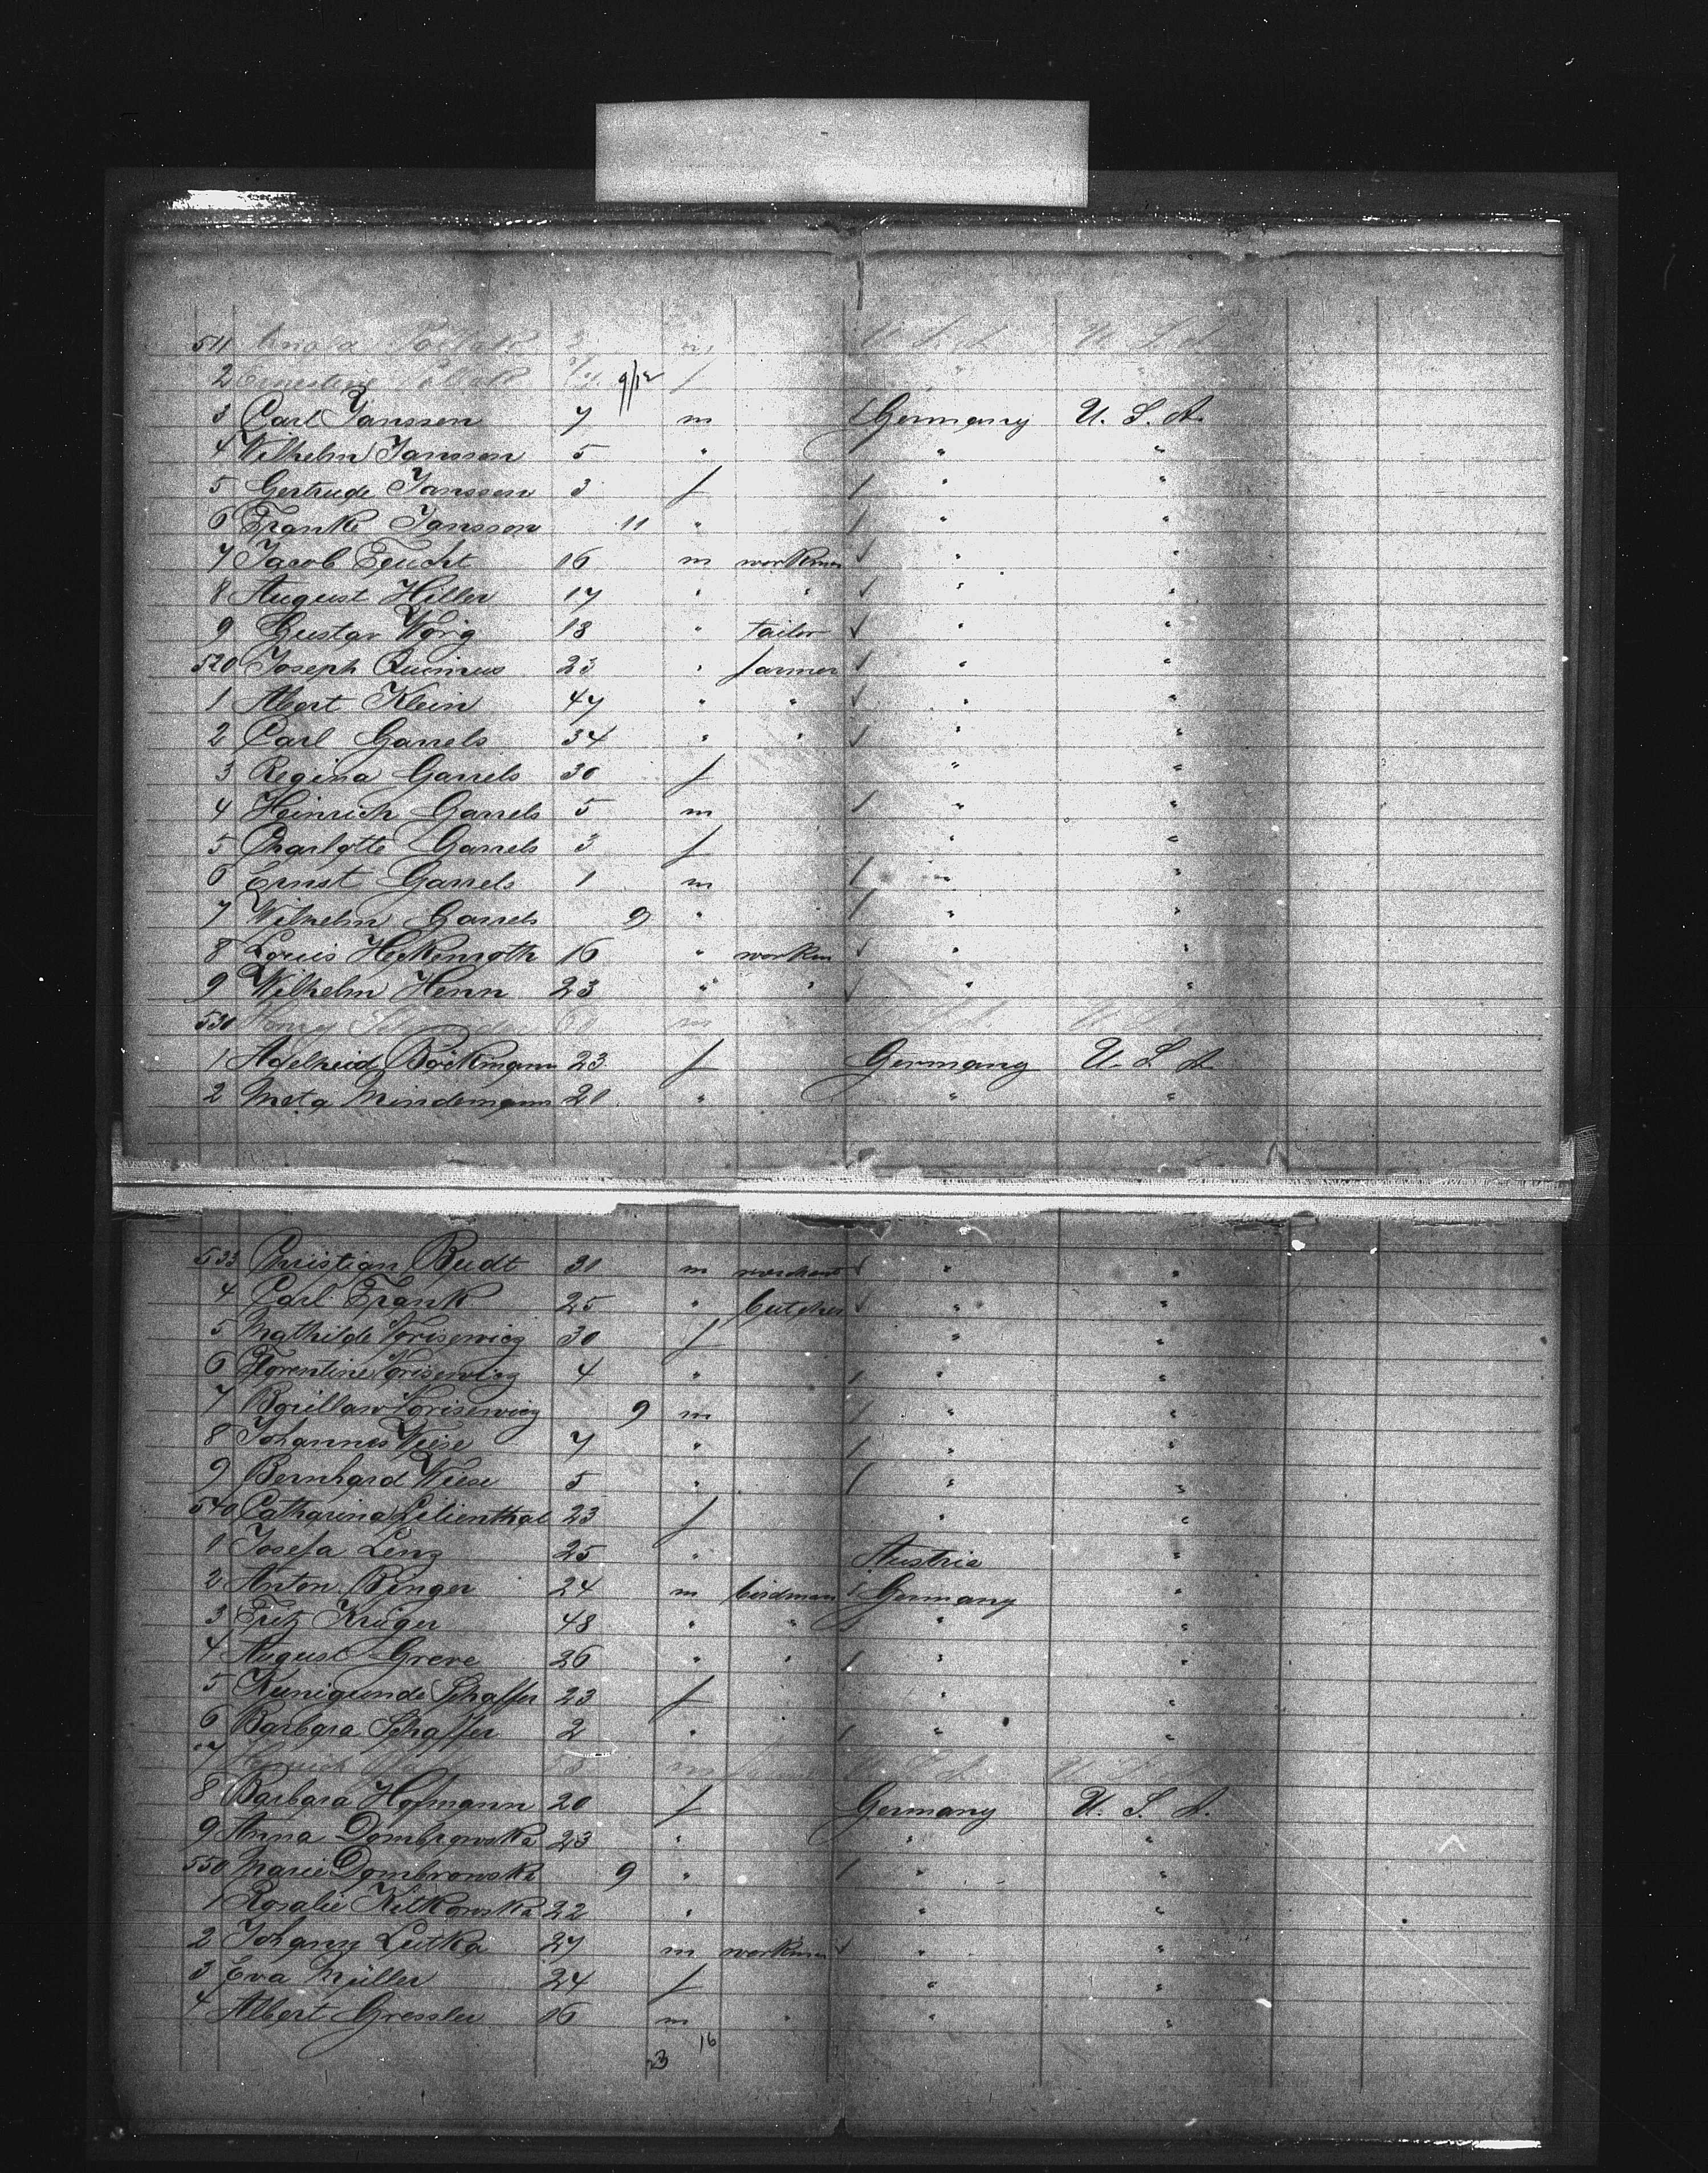 511 2 m U. S. A. U. S. A.
2 9/12 f
3 Carl Janssen 7 m Germany U. S. A.
4 Wilhelm Janssen 5 " " "
5 Gertrude Janssen 3 f " "
6 Franke Janssen 11 " " "
7 Jacob Feucht 16 m workman " "
8 August Hiller 17 " " " "
9 Gustav Wörig 18 " tailor " "
520 Joseph 23 " farmer " "
1 Albert Klein 47 " " " "
2 Carl Garrels 34 " " " "
3 Regina Garrels 30 f " "
4 Heinrich Garrels 5 m " "
5 Charlotte Garrels 3 f " "
6 Ernst Garrels 1 m " "
7 Wilhelm Garrels 9 " " "
8 Louis Heckenroth 16 " workm " "
9 Wilhelm Henn 23 " " " "
530 m U. S. A. U. S. A.
1 Adelheid Böckmann 23 f Germany U. S. A.
2 Meta Mindemann 21 " " "
533 Christian Budt 31 m merchant " "
4 Carl Frank 25 " butcher " "
5 Mathilde Norisewicz 30 f " "
6 Florentine Norisewicz 4 " " "
7 Norisewicz 9 m " "
8 Johannes Wiese 7 " " "
9 Bernhard Wiese 5 " " "
540 Catharina Lilienthal 23 f " "
1 Josefa Lenz 25 " Austria "
2 Anton Ringer 24 m birdman Germany "
3 Fritz Krüger 48 " " " "
4 August Greve 26 " " " "
5 Kunigunde Schaffer 23 f " "
6 Barbara Schaffer 2 " " "
7 m U. S. A. U. S. A.
8 Barbara Hofmann 20 f Germany U. S. A.
9 Anna Dombrowska 23 " " "
550 Marie Dombrowska 9 " " "
1 Rosalie Kitkowska 22 " " "
2 Johann Lutka 27 m workman " "
3 Eva Müller 24 f " "
4 Albert Gressler 16 m " " "
23 16